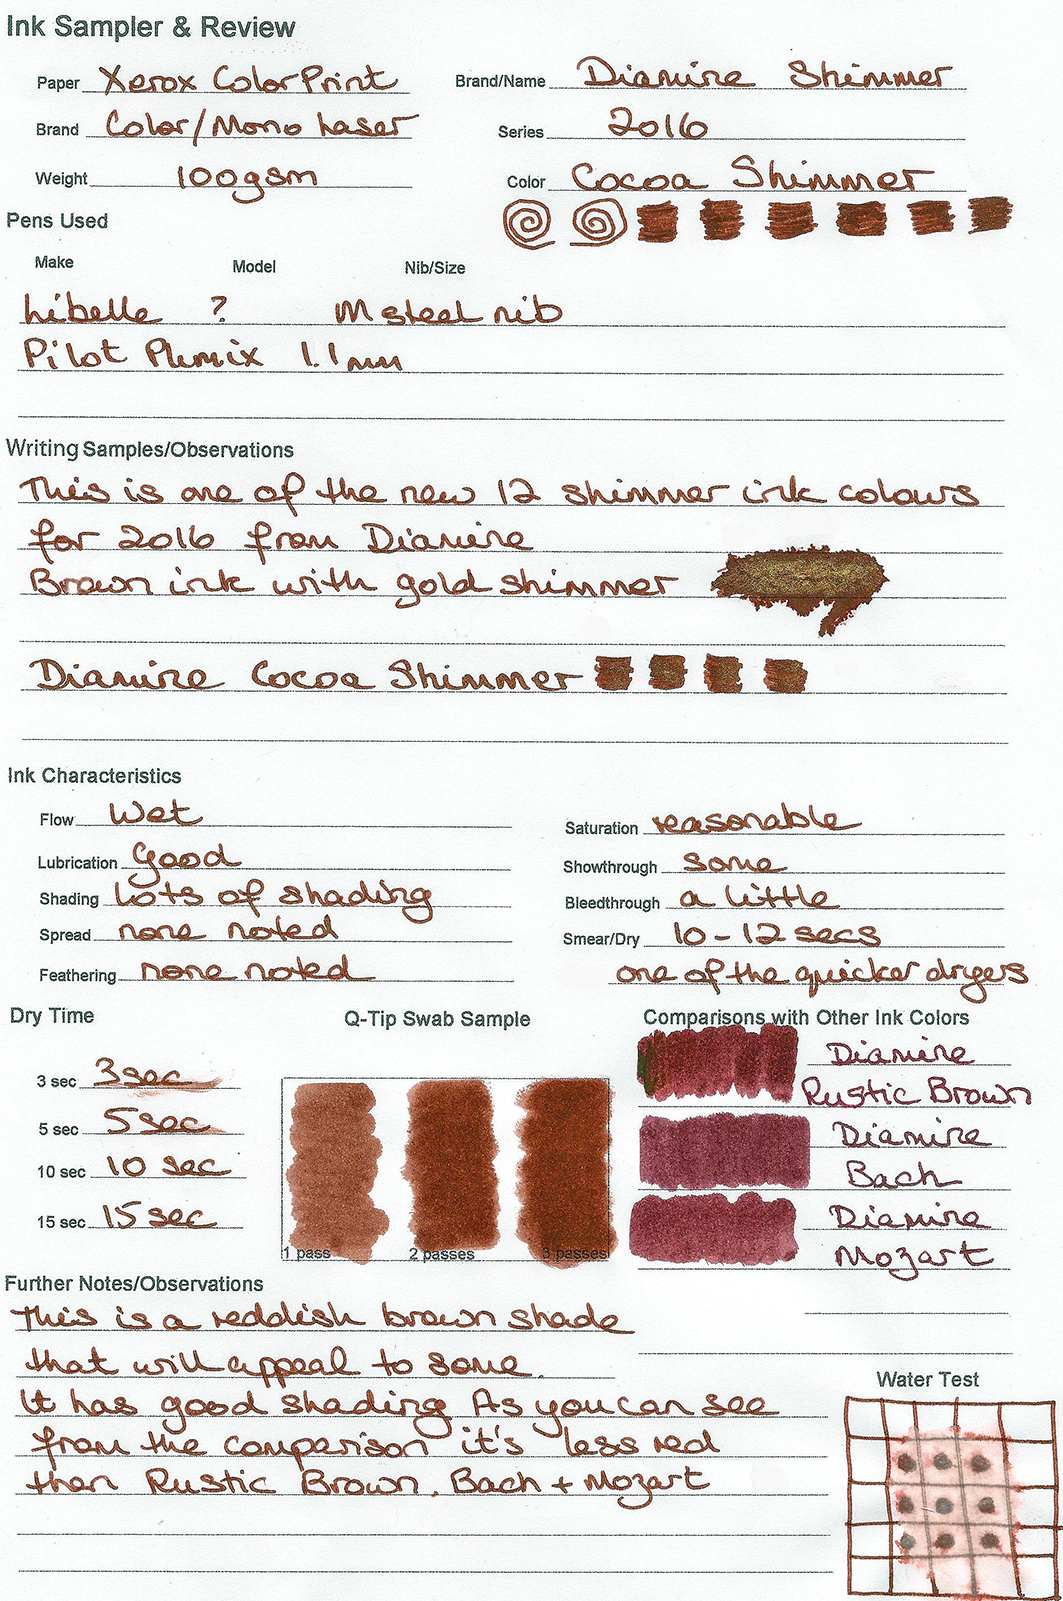 Ink Sampler & Review
Paper Xerox ColorPrint
Brand/Name Diamine Shimmer
Brand Color/Mono Laser
Series 2016
Weight 100gsm
Color Cocoa Shimmer
Pens Used
Make Model Nib/Size
Libelle ? M steel nib
Pilot Plumix 1.1mm
Writing Samples/Observations
This is one of the new 12 shimmer ink colours
for 2016 from Diamine
Brown ink with gold shimmer
Diamine Cocoa Shimmer
Ink Characteristics
Flow Wet
Saturation reasonable
Lubrication Good
Showthrough some
Shading Lots of shading
Bleedthrough a little
Spread none noted
Smear/Dry 10-12 secs
Feathering none noted
one of the quicker dryers
Dry Time
3 sec 3sec
5 sec 5sec
10 sec 10 sec
15 sec 15 sec
Q-Tip Swab Sample
1 pass 2 passes 3 passes
Comparisons with Other Ink Colors
Diamine
Rustic Brown
Diamine
Bach
Diamine
Mozart
Further Notes/Observations
This is a reddish brown shade
that will appeal to some.
It has good shading As you can see
from the comparison it's less red
then Rustic Brown, Bach + Mozart
Water Test